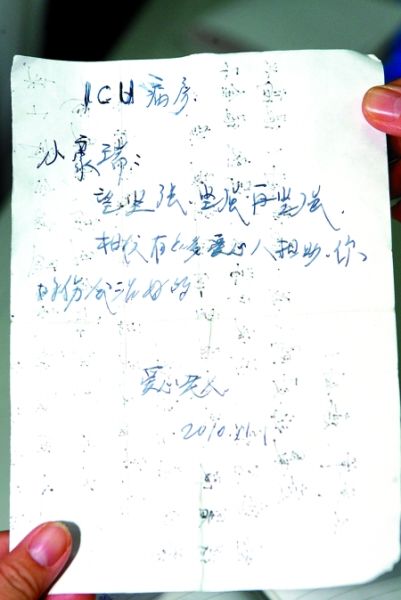 ICU 病房
小康瑞：
望坚强.坚强再坚强.
相信有众多爱心人相助.你
的伤会治好的
爱心老人
2010.